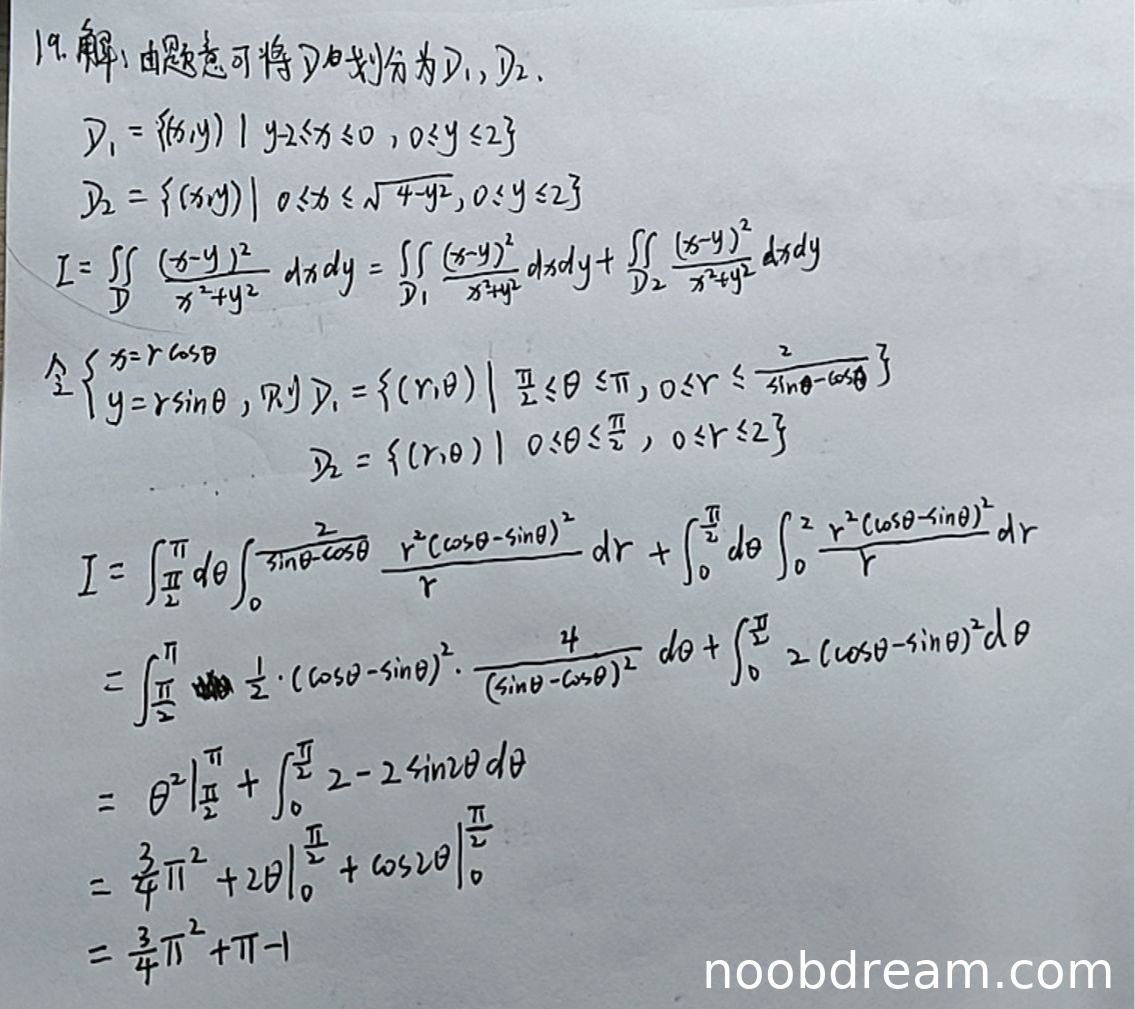 19. 解: 由题意可将D划分为D₁, D₂.
D₁ = {(x,y) | y-2≤x≤0, 0≤y≤2}
D₂ = {(x,y) | 0≤x≤√(4-y²), 0≤y≤2}
I = ∬_D (x-y)²/(x²+y²) dxdy = ∬_{D₁} (x-y)²/(x²+y²) dxdy + ∬_{D₂} (x-y)²/(x²+y²) dxdy
令 { x=rcosθ
y=rsinθ, 则 D₁ = {(r,θ) | π/2≤θ≤π, 0≤r≤2/(sinθ-cosθ)}
D₂ = {(r,θ) | 0≤θ≤π/2, 0≤r≤2}
I = ∫_{π/2}^{π} dθ ∫_0^{2/(sinθ-cosθ)} r²(cosθ-sinθ)²/r dr + ∫_0^{π/2} dθ ∫_0^2 r²(cosθ-sinθ)²/r dr
= ∫_{π/2}^{π} 1/2·(cosθ-sinθ)²· 4/(sinθ-cosθ)² dθ + ∫_0^{π/2} 2(cosθ-sinθ)²dθ
= θ²|_{π/2}^{π} + ∫_0^{π/2} 2-2sin2θdθ
= 3/4π² + 2θ|_0^{π/2} + cos2θ|_0^{π/2}
= 3/4π² + π-1
noobdream.com